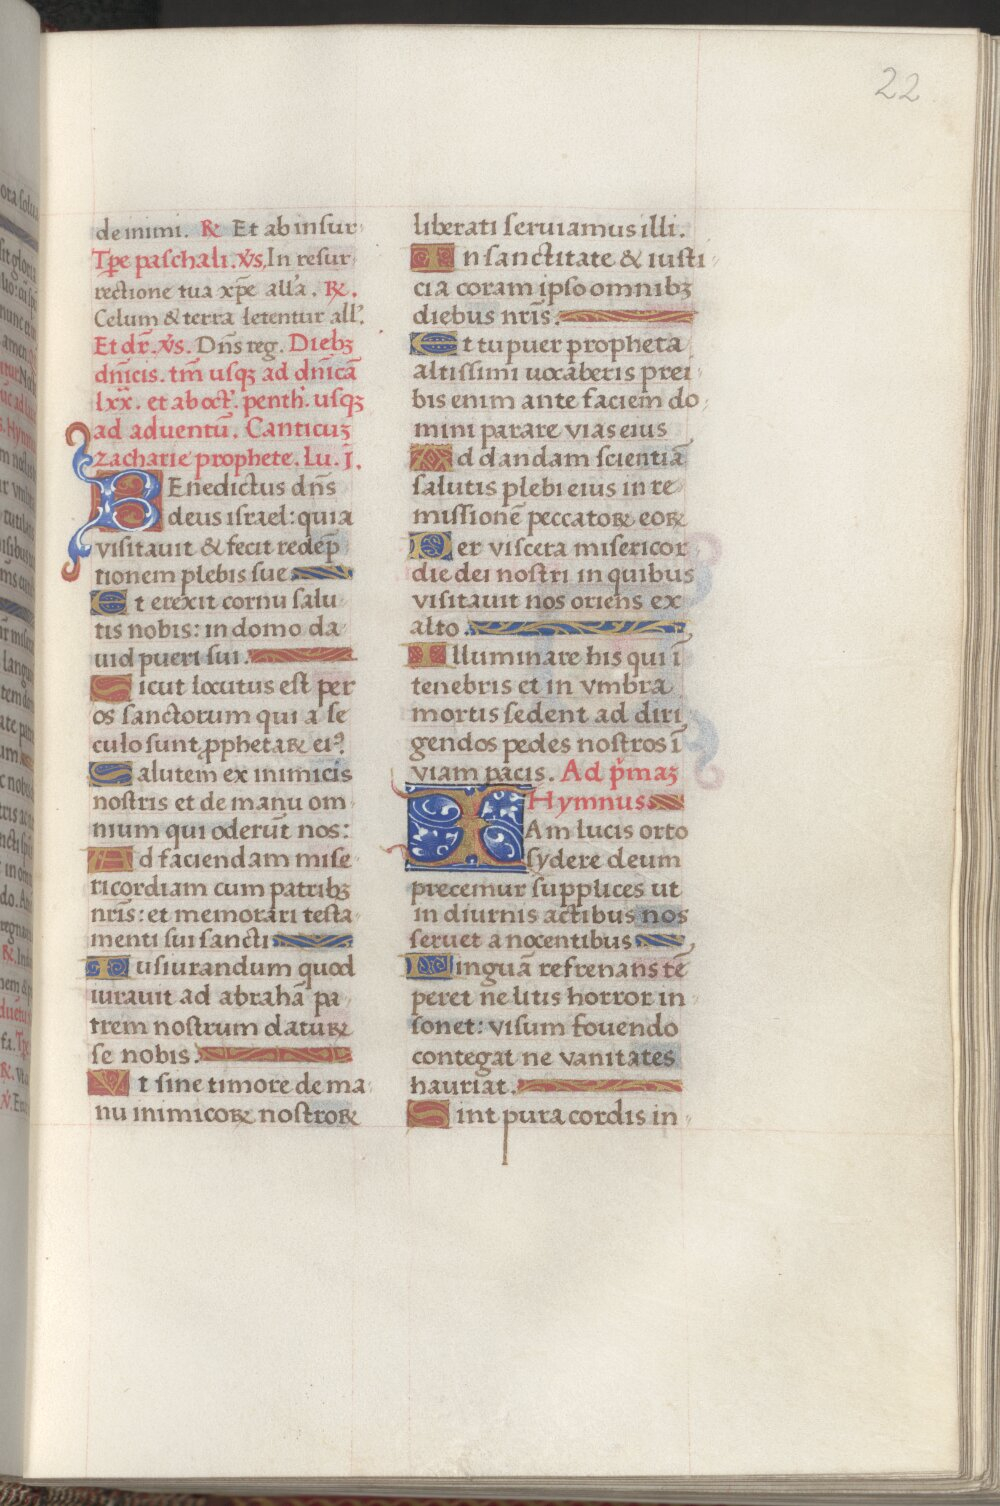 22
de inimi. ℟ Et ab insur
Tp̄e paschali. v̄s. In resur
rectione tua xp̄e all'a. ℟.
Celum & terra letentur all'.
Et dr̄. v̄s. Dn̄s reg. Diebꝫ
dn̄icis. tm̄ usqꝫ ad dn̄icā
lxx̄. et ab oct'. penth'. usqꝫ
ad aduentū. Canticuꝫ
zacharie prophete. Lu. j.
BEnedictus dn̄s
deus israel: quia
visitauit & fecit redēp
tionem plebis sue
Et erexit cornu salu
tis nobis: in domo da
uid pueri sui.
Sicut locutus est per
os sanctorum qui a se
culo sunt ꝓphetaꝝ ei⁹.
Salutem ex inimicis
nostris et de manu om
nium qui oderūt nos:
Ad faciendam mise
ricordiam cum patribꝫ
nr̄is: et memorari testa
menti sui sancti
Iusiurandum quod
iurauit ad abrahā pa
trem nostrum daturꝝ
se nobis.
Vt sine timore de ma
nu inimicoꝝ nostroꝝ
liberati seruiamus illi.
In sanctitate & iusti
cia coram ipso omnibꝫ
diebus nr̄is.
Et tu puer propheta
altissimi uocāberis prei
bis enim ante faciem do
mini parare vias eius
Ad dandam scientiā
salutis plebi eius in re
missionē peccatoꝝ eoꝝ
Per viscera misericor
die dei nostri in quibus
visitauit nos oriens ex
alto.
Illuminare his qui ī
tenebris et in vmbra
mortis sedent ad diri
gendos pedes nostros ī
viam pacis. Ad p̄maꝫ
Hymnus
IAm lucis orto
sydere deum
precemur supplices ut
in diurnis actibus nos
seruet a nocentibus
Linguā refrenans tē
peret ne litis horror in
sonet: visum fouendo
contegat ne vanitates
hauriat.
Sint pura cordis in